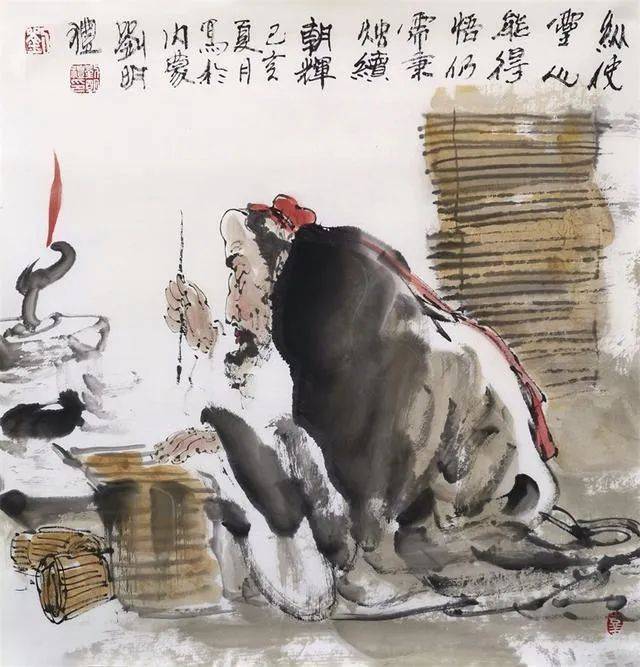 縱使
靈心
能得
悟仍
需秉
燭續
朝輝
己亥
夏月
寫於
内蒙
劉明